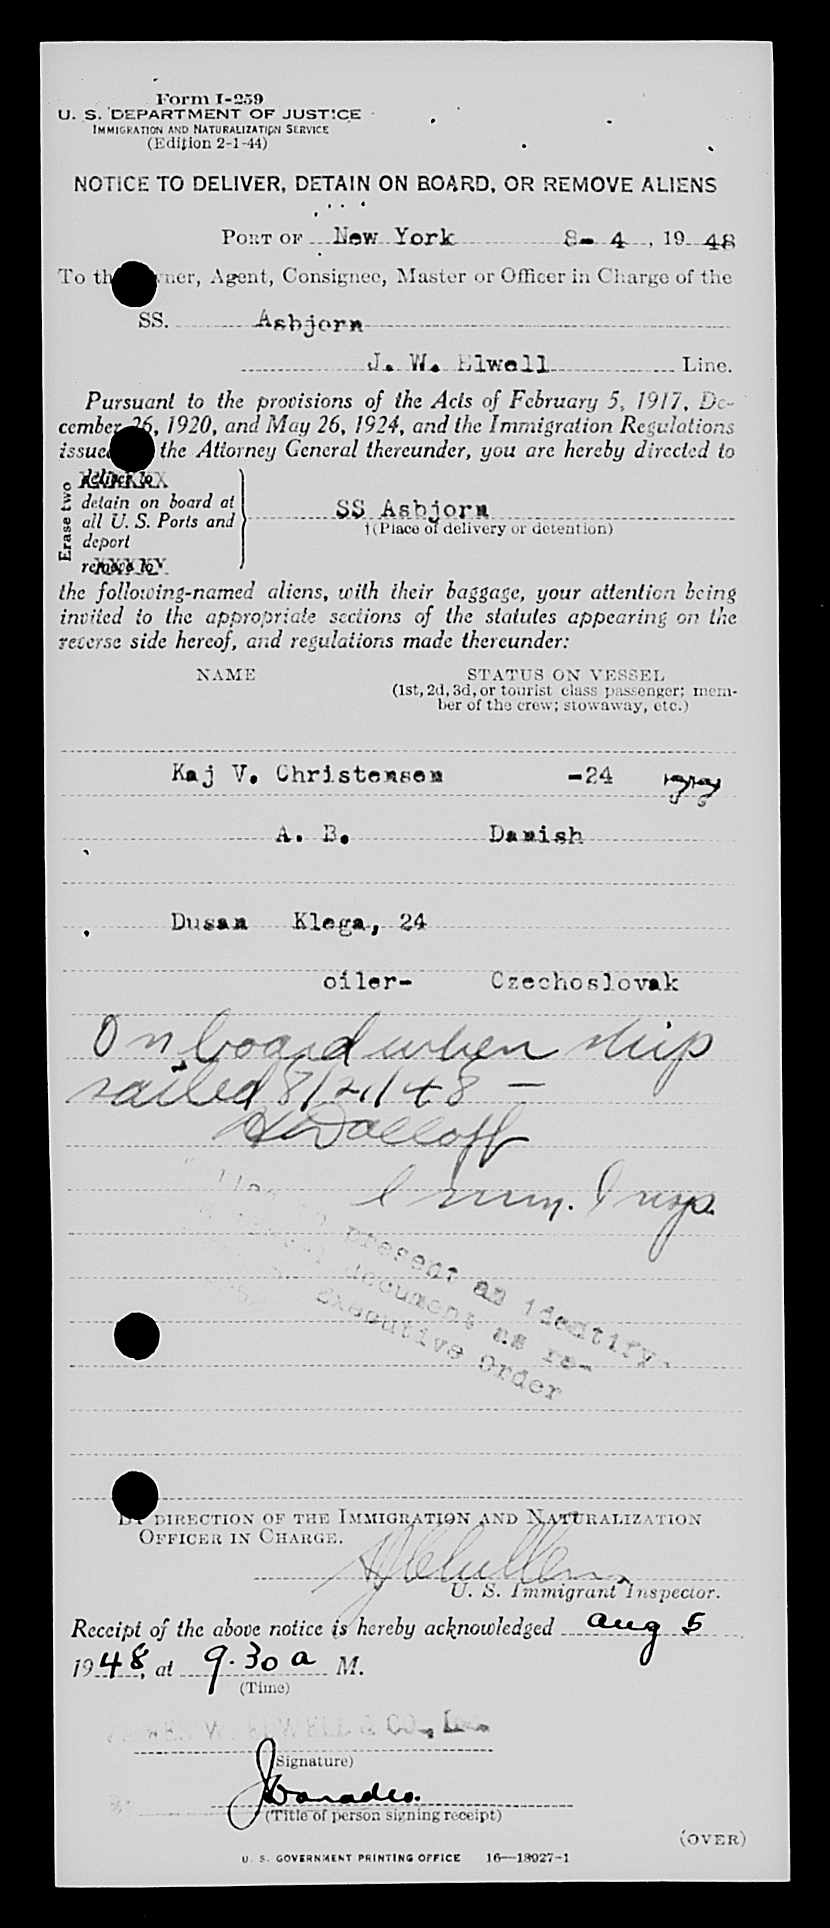 Form I-259
U. S. DEPARTMENT OF JUSTICE
IMMIGRATION AND NATURALIZATION SERVICE
(Edition 2-1-44)
NOTICE TO DELIVER, DETAIN ON BOARD, OR REMOVE ALIENS
PORT OF New York 8- 4, 19 48
To the Owner, Agent, Consignee, Master or Officer in Charge of the
SS. Asbjorn
J. W. Elwell Line.
Pursuant to the provisions of the Acts of February 5, 1917, De-
cember 26, 1920, and May 26, 1924, and the Immigration Regulations
issued the Attorney General thereunder, you are hereby directed to
Erase two
deliver to
detain on board at
all U. S. Ports and
deport
remove to
SS Asbjorn
†(Place of delivery or detention)
the following-named aliens, with their baggage, your attention being
invited to the appropriate sections of the statutes appearing on the
reverse side hereof, and regulations made thereunder:
NAME STATUS ON VESSEL
(1st, 2d, 3d, or tourist class passenger; mem-
ber of the crew; stowaway, etc.)
Kaj V. Christensen -24
A. B. Danish
Dusan Klega, 24
oiler- Czechoslovak
On board when ship
sailed 8/ /48 —
Immn. Insp.
present an identify-
document as re-
Executive Order
BY DIRECTION OF THE IMMIGRATION AND NATURALIZATION
OFFICER IN CHARGE.
U. S. Immigrant Inspector.
Receipt of the above notice is hereby acknowledged Aug 5
19 48, at 9.30 a M.
(Time)
W. ELWELL & CO., Inc.
(Signature)
By
(Title of person signing receipt)
(OVER)
U. S. GOVERNMENT PRINTING OFFICE 16—18927-1